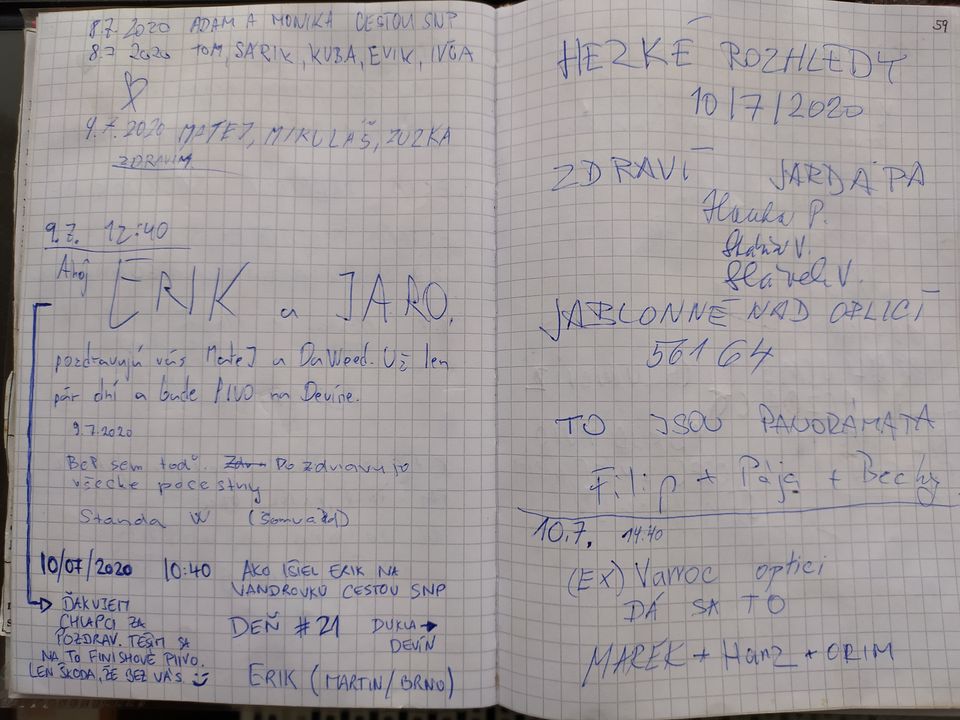 8.7.2020 ADAM A MONIKA CESTOU SNP
8.7 2020 TOM, SÁRIK, KUBA, EVIK, IVČA
9.7.2020 MATEJ, MIKULÁŠ, ZUZKA
ZDRAVÍM
9.7. 12:40
Ahoj
ERIK a JARO,
pozdravujú vás MateJ a DaWeed. Už len
pár dní a bude PIVO na Devíne.
9.7.2020
Beř sem toď. Pozdravujo
všecke pocestny
Standa W
10/07/2020 10:40 AKO IŠIEL ERIK NA
VANDROVKU CESTOU SNP
ĎAKUJEM
CHLAPCI ZA
POZDRAV. TEŠÍM SA
NA TO FINISHOVÉ PIIVO.
LEN ŠKODA, ŽE BEZ VÁS.
DEŇ #21 DUKLA → DEVÍN
ERIK (MARTIN/BRNO)
59
HEZKÉ ROZHLEDY
10/7/2020
ZDRAVÍ JARDA PA
Hanka P.
Slávek V.
JABLONNÉ NAD ORLICÍ
561 64
TO JSOU PANORÁMATA
Filip + Pája + Becky
10.7. 14:40
(EX) Varroc optici
DÁ SA TO
MAREK + Hanz + ORIM